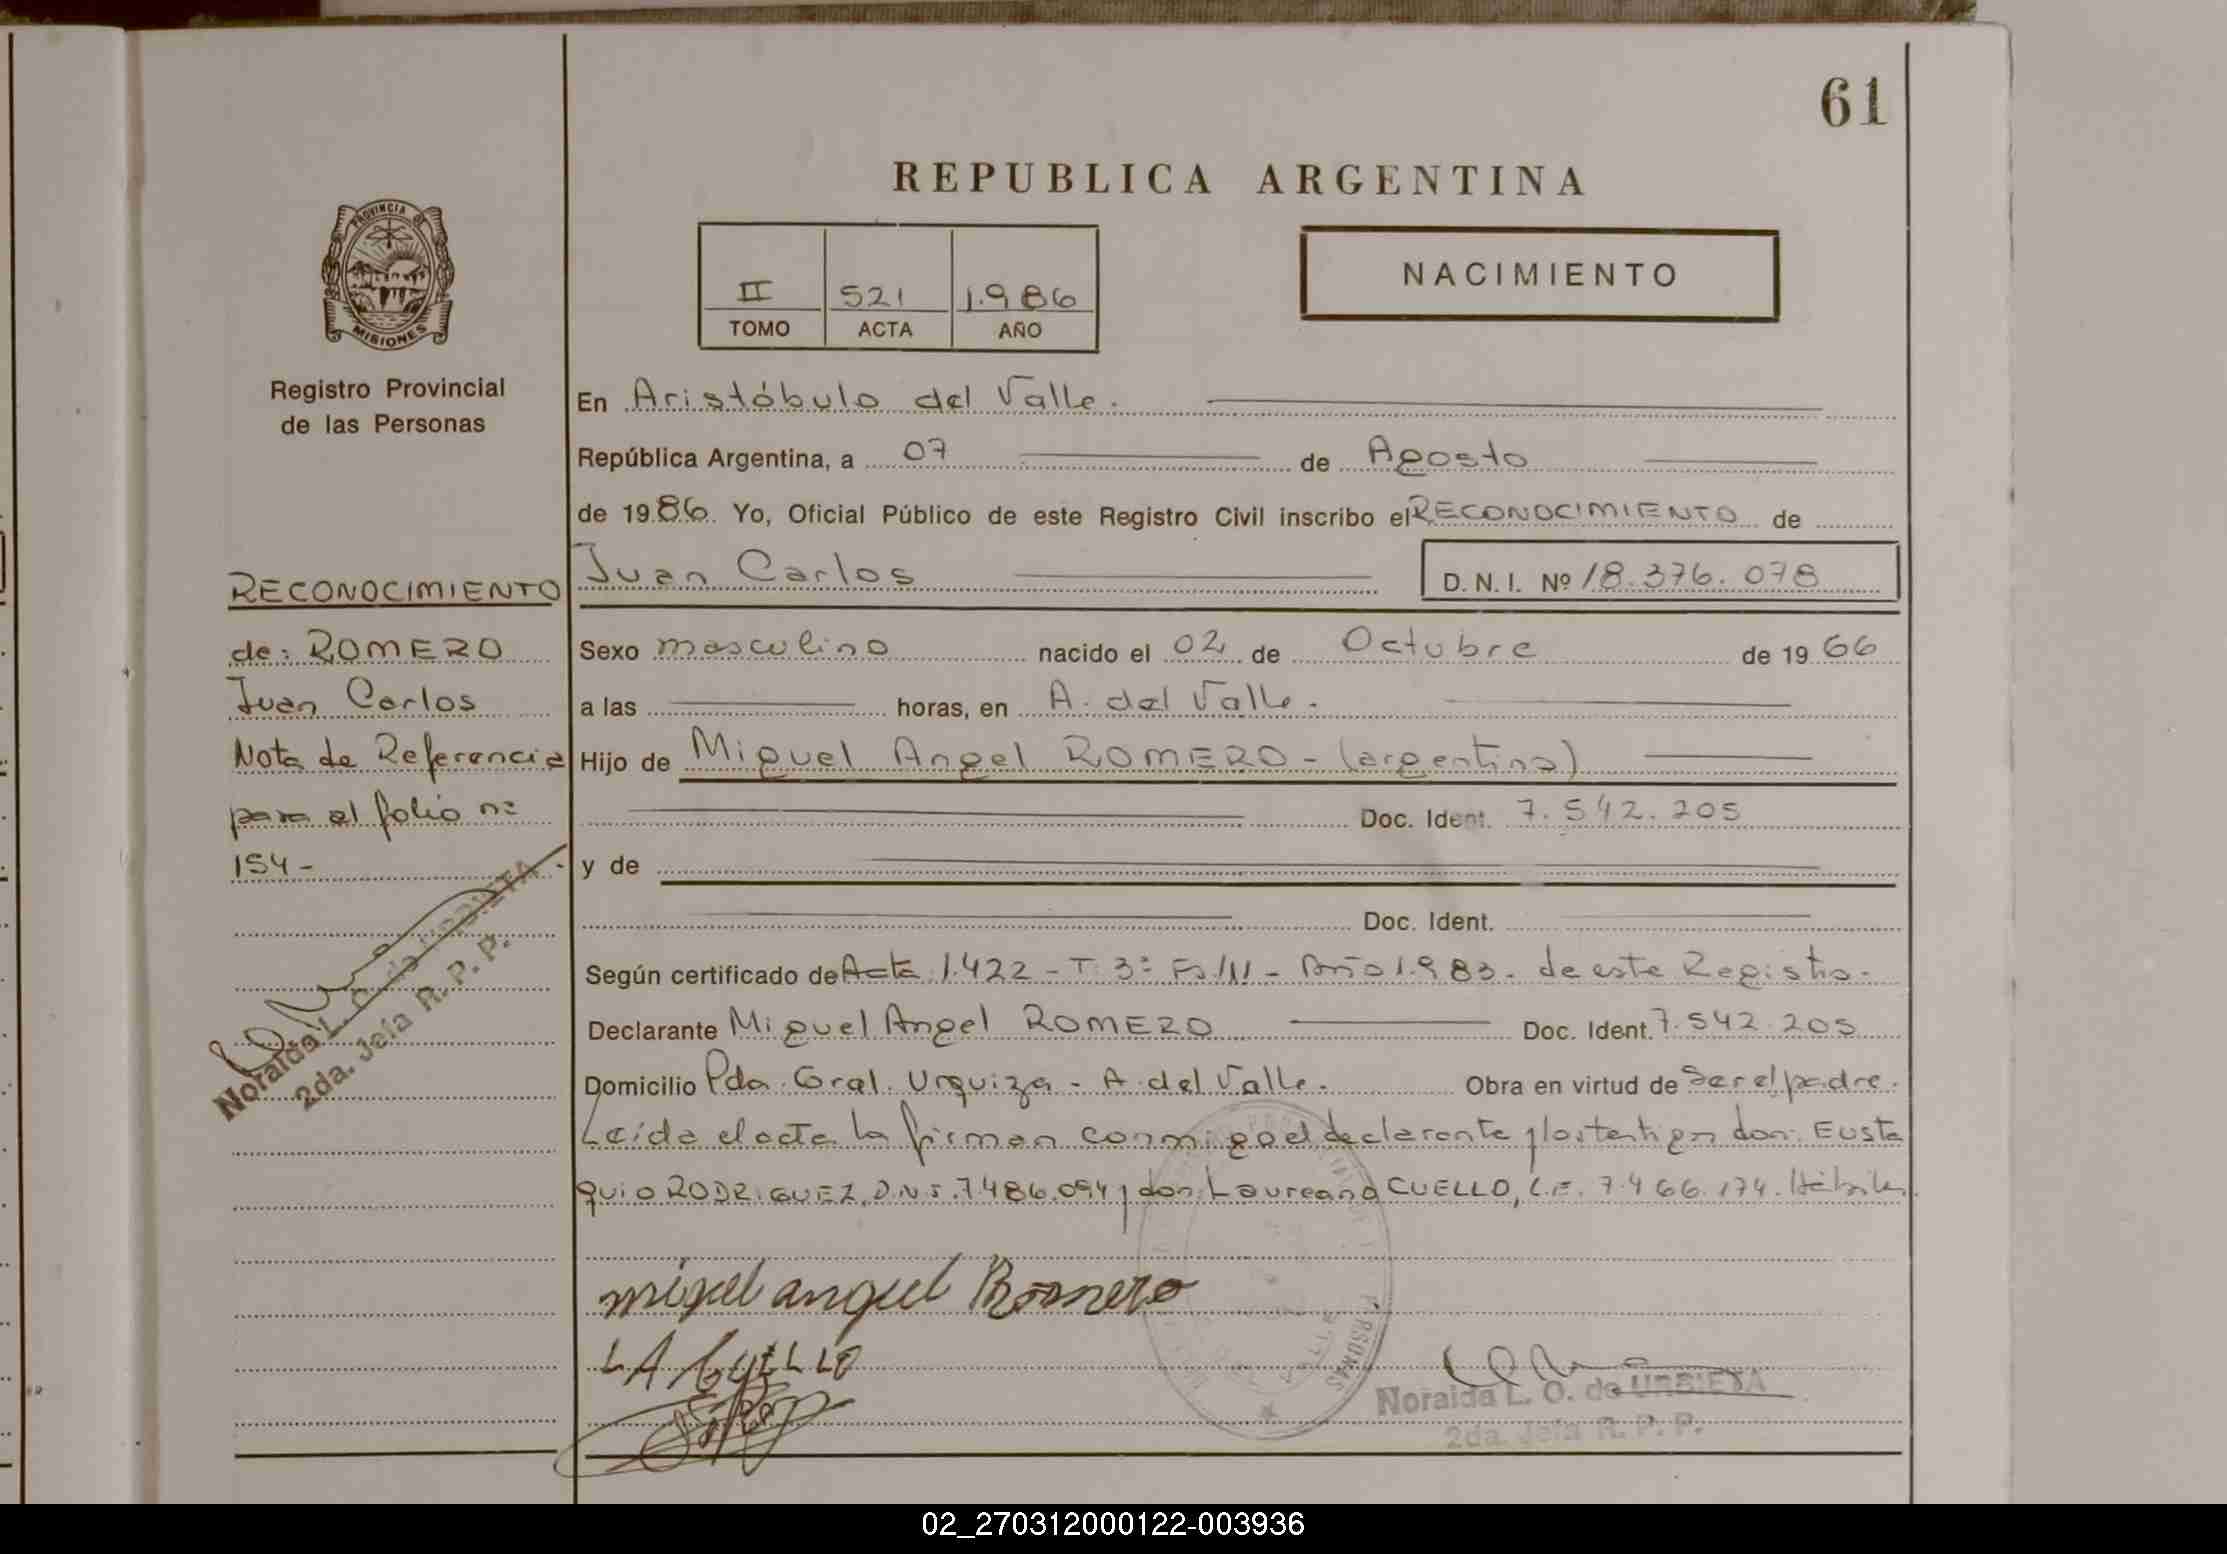 61
REPUBLICA ARGENTINA
PROVINCIA DE
MISIONES
II 521 1.986
TOMO ACTA AÑO
NACIMIENTO
Registro Provincial
de las Personas
RECONOCIMIENTO
de: ROMERO
Juan Carlos
Nota de Referencia
para el folio nº
154-
Noralda L. O. de URBIETA
2da. Jefa R. P. P.
En Aristóbulo del Valle.
República Argentina, a 07 de Agosto
de 1986. Yo, Oficial Público de este Registro Civil inscribo el RECONOCIMIENTO de
Juan Carlos D. N. I. Nº 18.376.078
Sexo masculino nacido el 02 de Octubre de 1966
a las horas, en A. del Valle.
Hijo de Miguel Angel ROMERO - (argentino)
Doc. Ident. 7.542.205
y de
Doc. Ident.
Según certificado de Acta 1.422 - T. 3º Fs/ - Año 1.983. de este Registro.
Declarante Miguel Angel ROMERO Doc. Ident. 7.542.205
Domicilio Pda. Gral. Urquiza - A. del Valle. Obra en virtud de Ser el padre.
Leída el acta la firman conmigo el declarante y los testigos don: Eusta
quio RODRIGUEZ, D.N.I. 7.486.094 y don: Laureano CUELLO, L.E. 7.466.174. Hábiles
miguel anguel Romero
LA CUELLO
Noralda L. O. de URBIETA
2da. Jefa R. P. P.
02_270312000122-003936